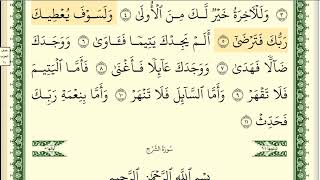 ٣ وَلَلْآخِرَةُ خَيْرٌ لَّكَ مِنَ الْأُولَىٰ ٤ وَلَسَوْفَ يُعْطِيكَ
رَبُّكَ فَتَرْضَىٰ ٥ أَلَمْ يَجِدْكَ يَتِيمًا فَآوَىٰ ٦ وَوَجَدَكَ
ضَالًّا فَهَدَىٰ ٧ وَوَجَدَكَ عَائِلًا فَأَغْنَىٰ ٨ فَأَمَّا الْيَتِيمَ
فَلَا تَقْهَرْ ٩ وَأَمَّا السَّائِلَ فَلَا تَنْهَرْ ١٠ وَأَمَّا بِنِعْمَةِ رَبِّكَ
فَحَدِّثْ ١١
سُورَةُ الشَّرْحِ
بِسْمِ اللَّهِ الرَّحْمَٰنِ الرَّحِيمِ